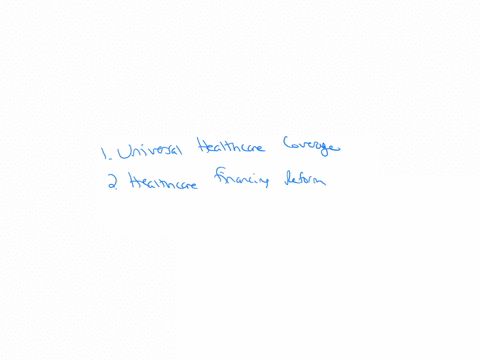 1. Universal Healthcare Coverage
2. Healthcare Financing Reform